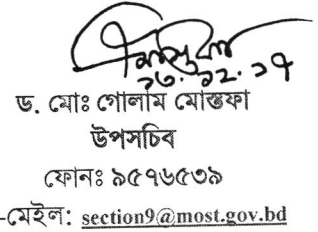 ১৩.১২.১৭
ড. মোঃ গোলাম মোস্তফা
উপসচিব
ফোনঃ ৯৫৭৬৫৩৯
-মেইল: section9@most.gov.bd